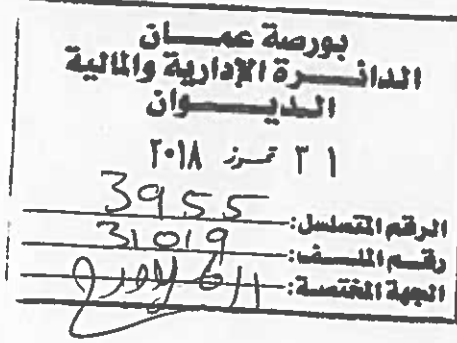 بورصة عمــــان
الدائــــرة الإدارية والمالية
الديـــــوان
٣١ تمـوز ٢٠١٨
الرقم المتسلسل: 3955
رقـــم الملـــف: 31019
الجهة المختصة: